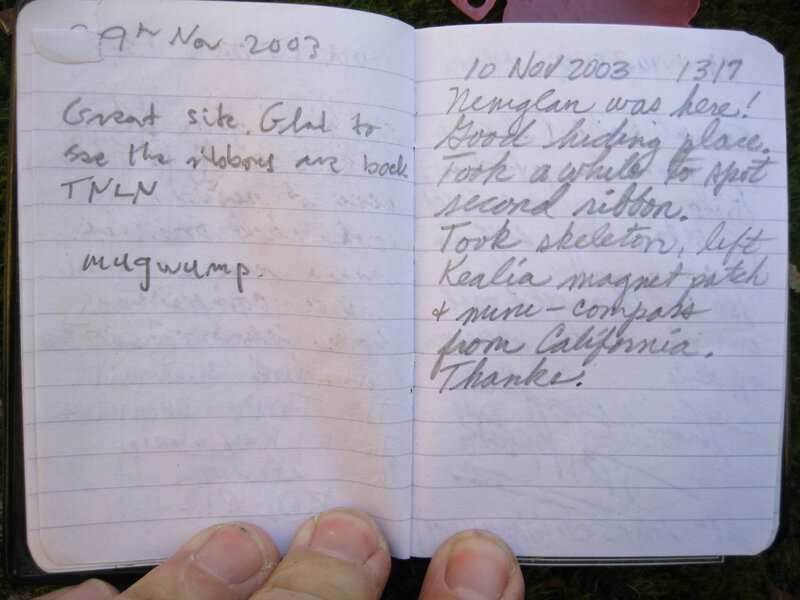 9th Nov 2003
Great site. Glad to
see the ribbons are back
TNLN
mugwump.
10 Nov 2003 1317
Nemglan was here!
Good hiding place.
Took a while to spot
second ribbon.
Took skeleton, left
Kealia magnet patch
& mine-compass
from California.
Thanks!